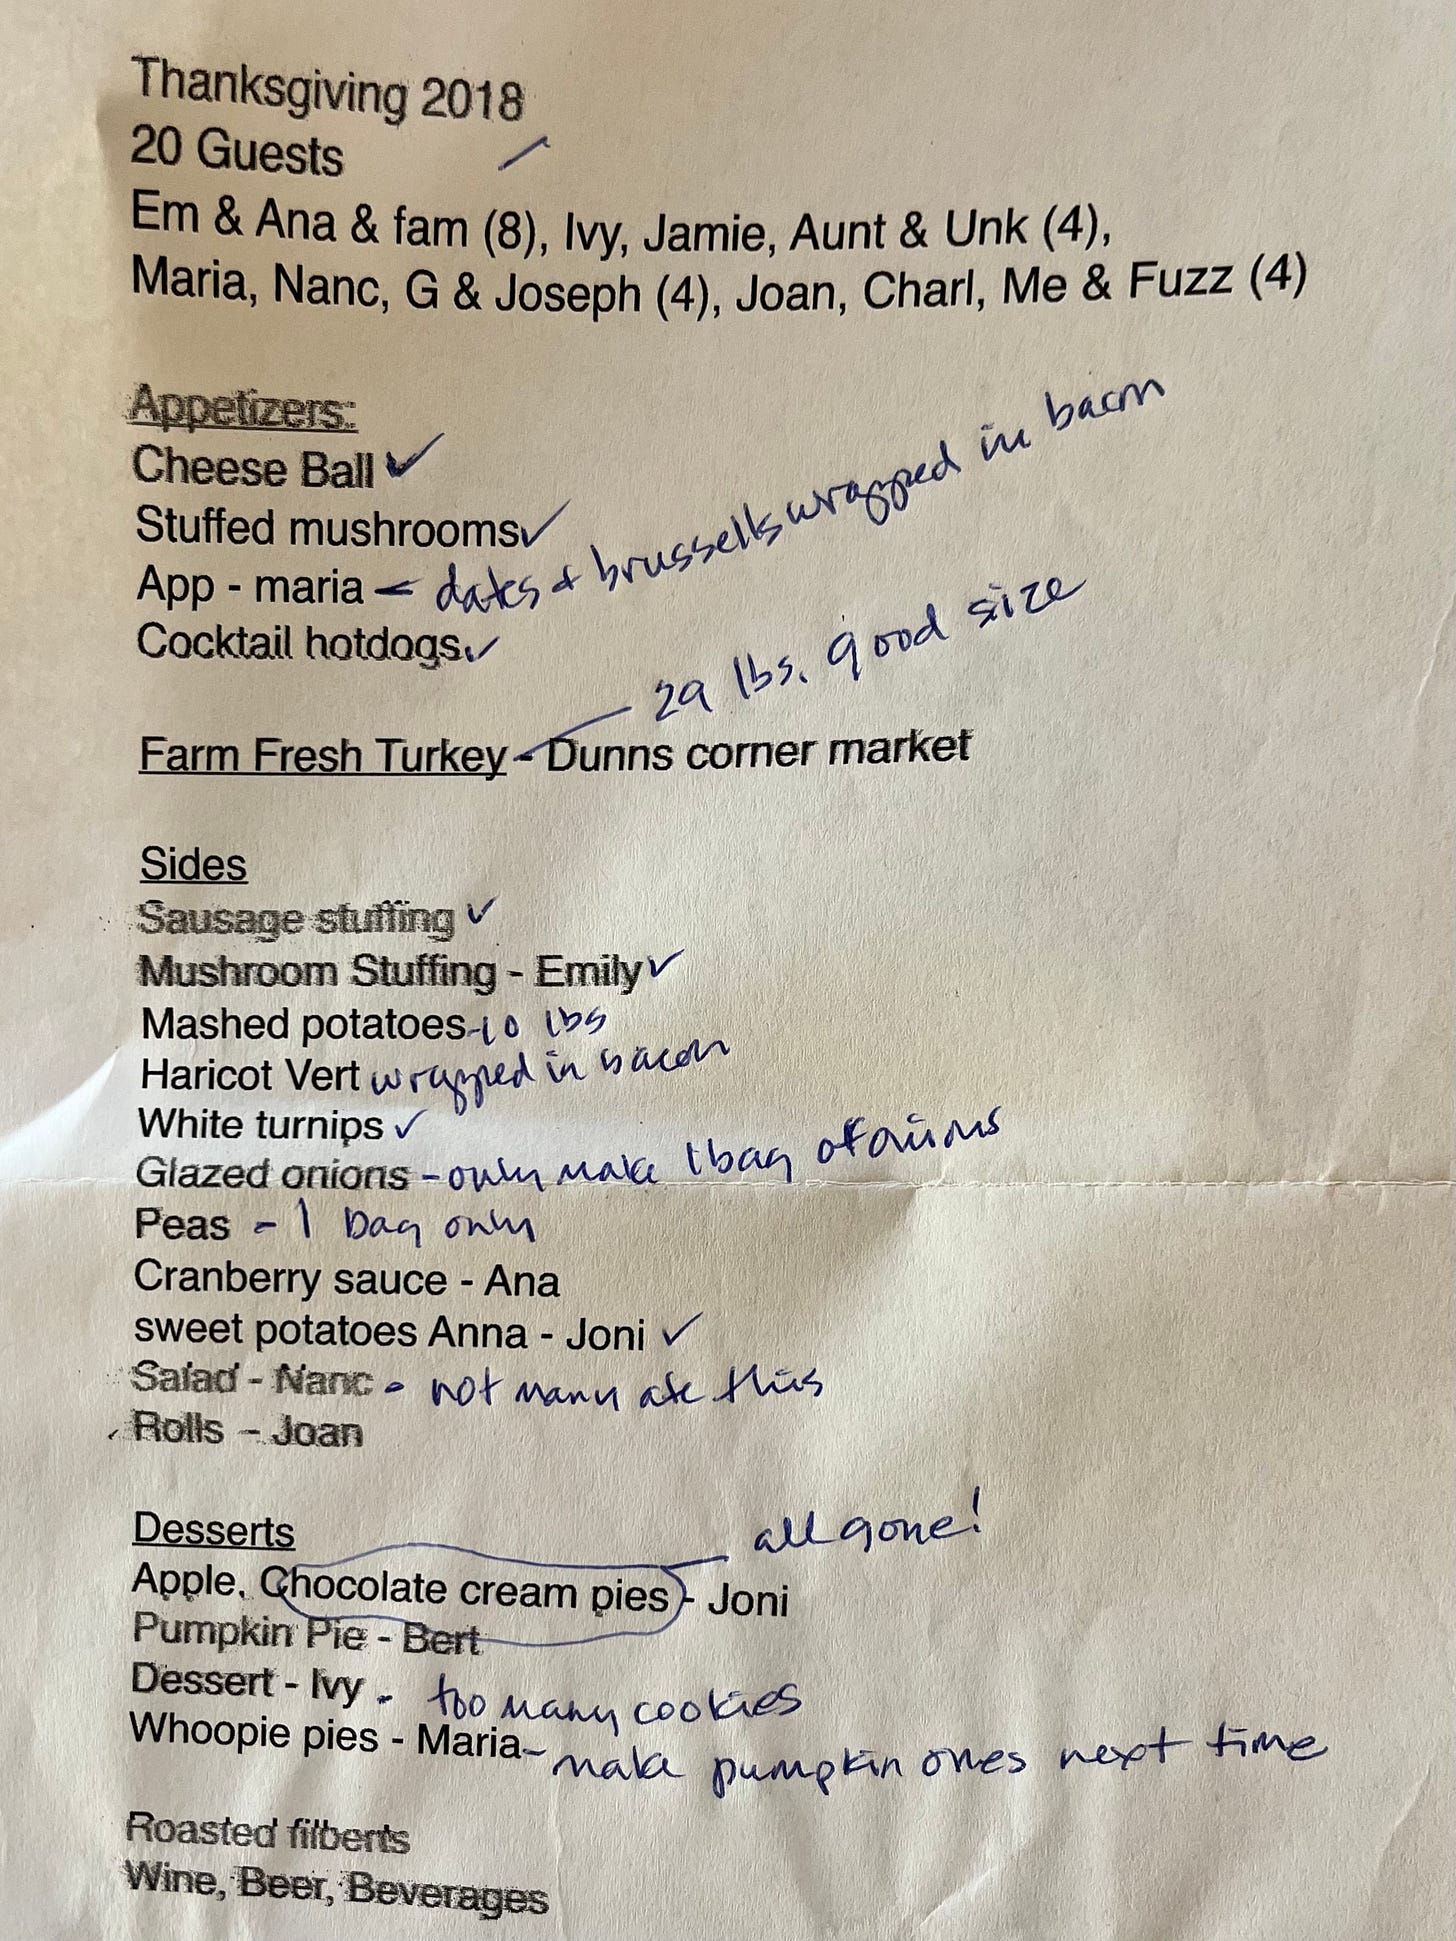 Thanksgiving 2018
20 Guests
Em & Ana & fam (8), Ivy, Jamie, Aunt & Unk (4),
Maria, Nanc, G & Joseph (4), Joan, Charl, Me & Fuzz (4)
Appetizers:
Cheese Ball ✓
Stuffed mushrooms ✓
App - maria - dates & brussells wrapped in bacon
Cocktail hotdogs ✓
29 lbs. good size
Farm Fresh Turkey - Dunns corner market
Sides
Sausage stuffing ✓
Mushroom Stuffing - Emily ✓
Mashed potatoes - 10 lbs
Haricot Vert wrapped in bacon
White turnips ✓
Glazed onions - only make 1 bag of onions
Peas - 1 bag only
Cranberry sauce - Ana
sweet potatoes Anna - Joni ✓
Salad - Nanc - not many ate this
Rolls - Joan
Desserts
all gone!
Apple, Chocolate cream pies - Joni
Pumpkin Pie - Bert
Dessert - Ivy - too many cookies
Whoopie pies - Maria - make pumpkin ones next time
Roasted filberts
Wine, Beer, Beverages